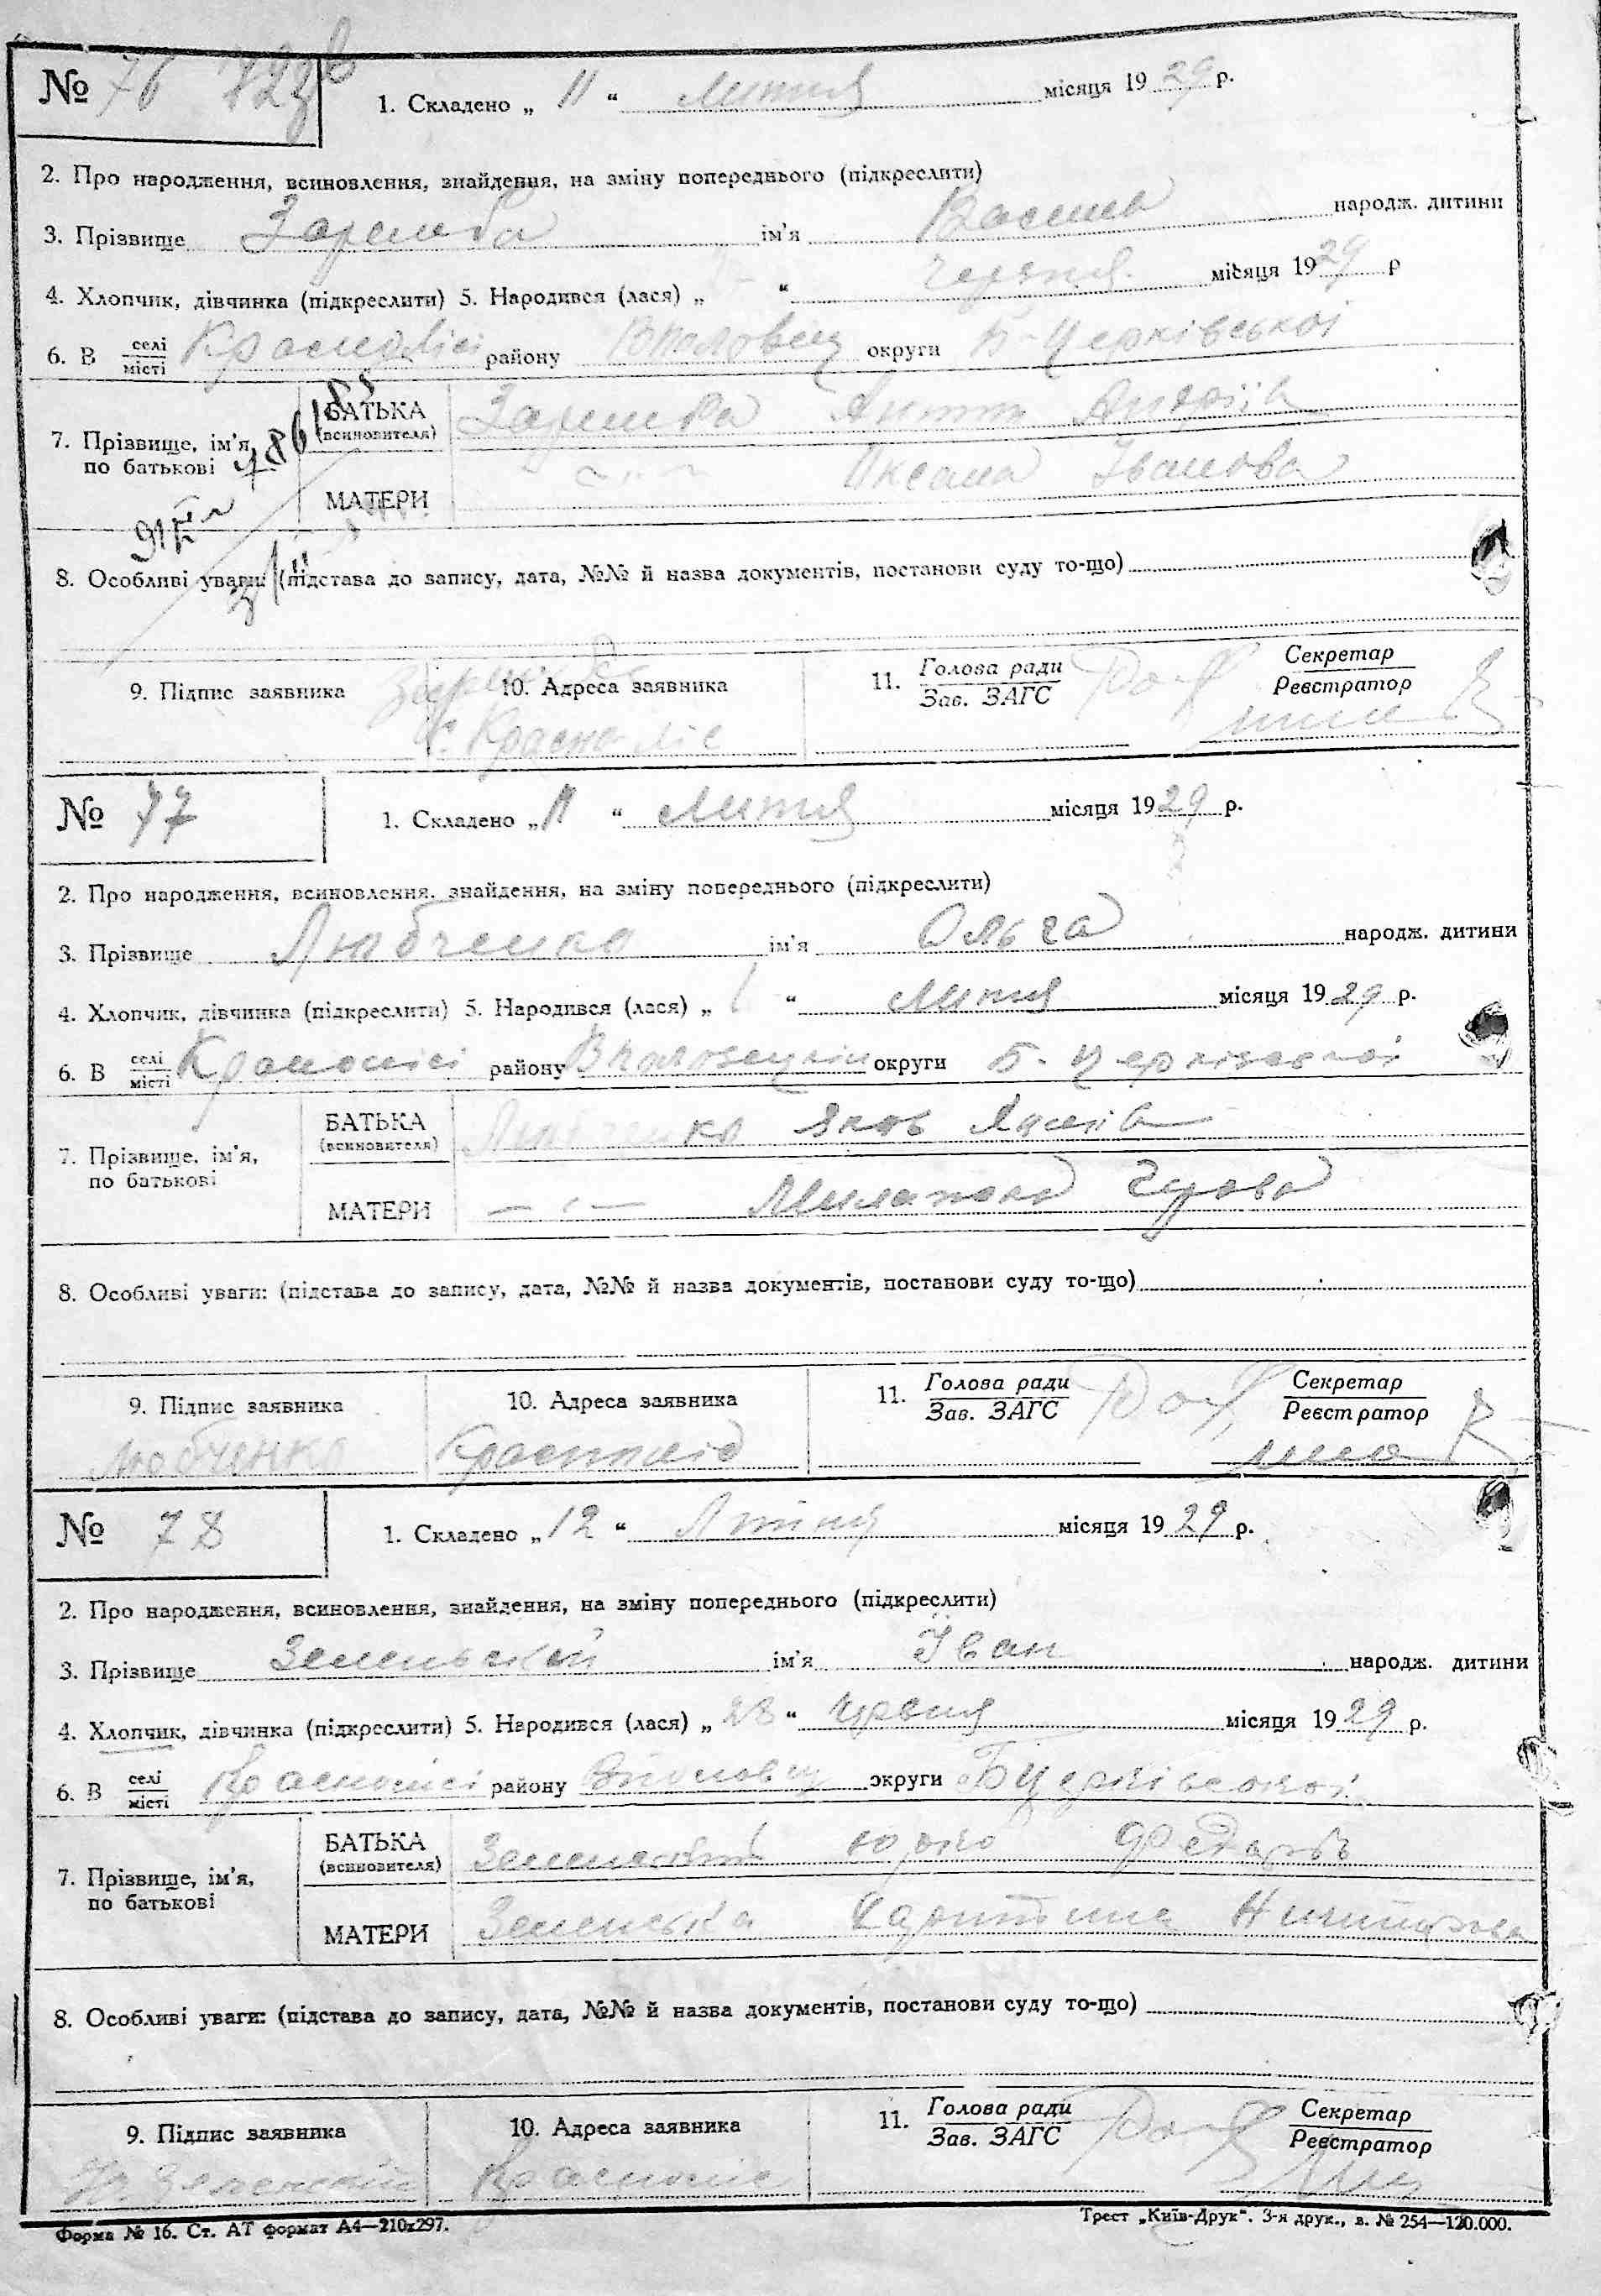 № 76
1. Складено „ 11 “ липня місяця 1929 р.
2. Про народження, всиновлення, знайдення, на зміну попереднього (підкреслити)
3. Прізвище Заремба ім'я Василь народж. дитини
4. Хлопчик, дівчинка (підкреслити) 5. Народився (лася) „ “ червня місяця 1929 р
6. В селі/місті Краснолісі району округи Б-Церківської
7. Прізвище, ім'я, по батькові
БАТЬКА (всиновителя) Заремба Антон Андріїв
МАТЕРИ Оксана Іванова
8. Особливі уваги: (підстава до запису, дата, №№ й назва документів, постанови суду то-що)
9. Підпис заявника 10. Адреса заявника 11. Голова ради/Зав. ЗАГС Секретар/Реєстратор
с. Красноліс
№ 77
1. Складено „ 11 “ липня місяця 1929 р.
2. Про народження, всиновлення. знайдення, на зміну попереднього (підкреслити)
3. Прізвище Любченко ім'я Ольга народж. дитини
4. Хлопчик, дівчинка (підкреслити) 5. Народився (лася) „ 1 “ липня місяця 1929 р.
6. В селі/місті Краснолісі району округи Б-Церківської
7. Прізвище, ім'я, по батькові
БАТЬКА (всиновителя) Любченко
МАТЕРИ
8. Особливі уваги: (підстава до запису, дата, №№ й назва документів, постанови суду то-що)
9. Підпис заявника 10. Адреса заявника 11. Голова ради/Зав. ЗАГС Секретар/Реєстратор
Любченко
№ 78
1. Складено „ 12 “ місяця 1929 р.
2. Про народження, всиновлення, знайдення, на зміну попереднього (підкреслити)
3. Прізвище Зеленський ім'я Іван народж. дитини
4. Хлопчик, дівчинка (підкреслити) 5. Народився (лася) „ 28 “ червня місяця 1929 р.
6. В селі/місті Краснолісі району округи Б Церківської
7. Прізвище, ім'я, по батькові
БАТЬКА (всиновителя) Зеленський Юрко
МАТЕРИ Зеленська
8. Особливі уваги: (підстава до запису, дата, №№ й назва документів, постанови суду то-що)
9. Підпис заявника 10. Адреса заявника 11. Голова ради/Зав. ЗАГС Секретар/Реєстратор
Красноліс
Форма № 16. Ст. АТ формат А4—210х297. Трест „Київ-Друк“. 3-я друк., з. № 254—120.000.